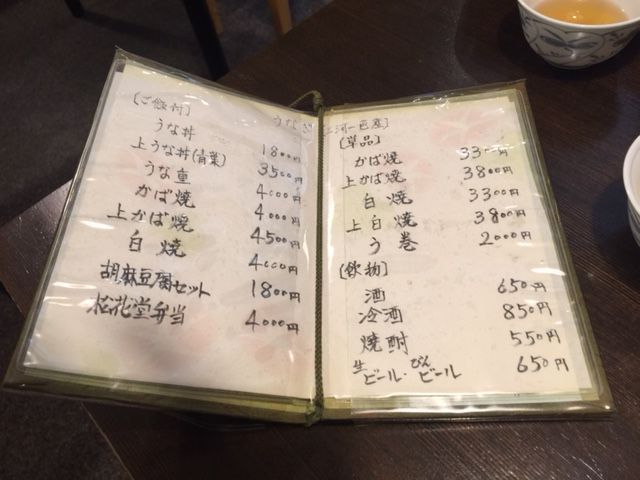 [ご飯付]
うな丼 1800円
上うな丼(青葉) 3500円
うな重 4000円
かば焼 4000円
上かば焼 4500円
白焼 4000円
胡麻豆腐セット 1800円
松花堂弁当 4000円
うなぎ[三河一色産]
[単品]
かば焼 3300円
上かば焼 3800円
白焼 3300円
上白焼 3800円
う巻 2000円
[飲物]
酒 650円
冷酒 850円
焼酎 550円
生ビール・びんビール 650円